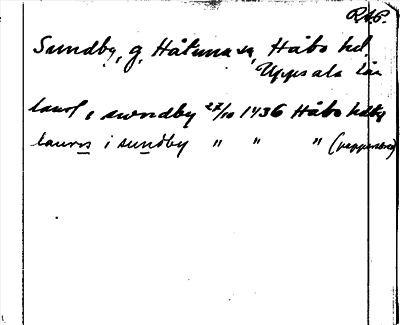 RAP.
Sundby, g, Håtuna sn, Håbo hd,
Uppsala län
laur i swndby 22/10 1436 Håbo hdbr
laurus i sundby " " " (pappersbrev)